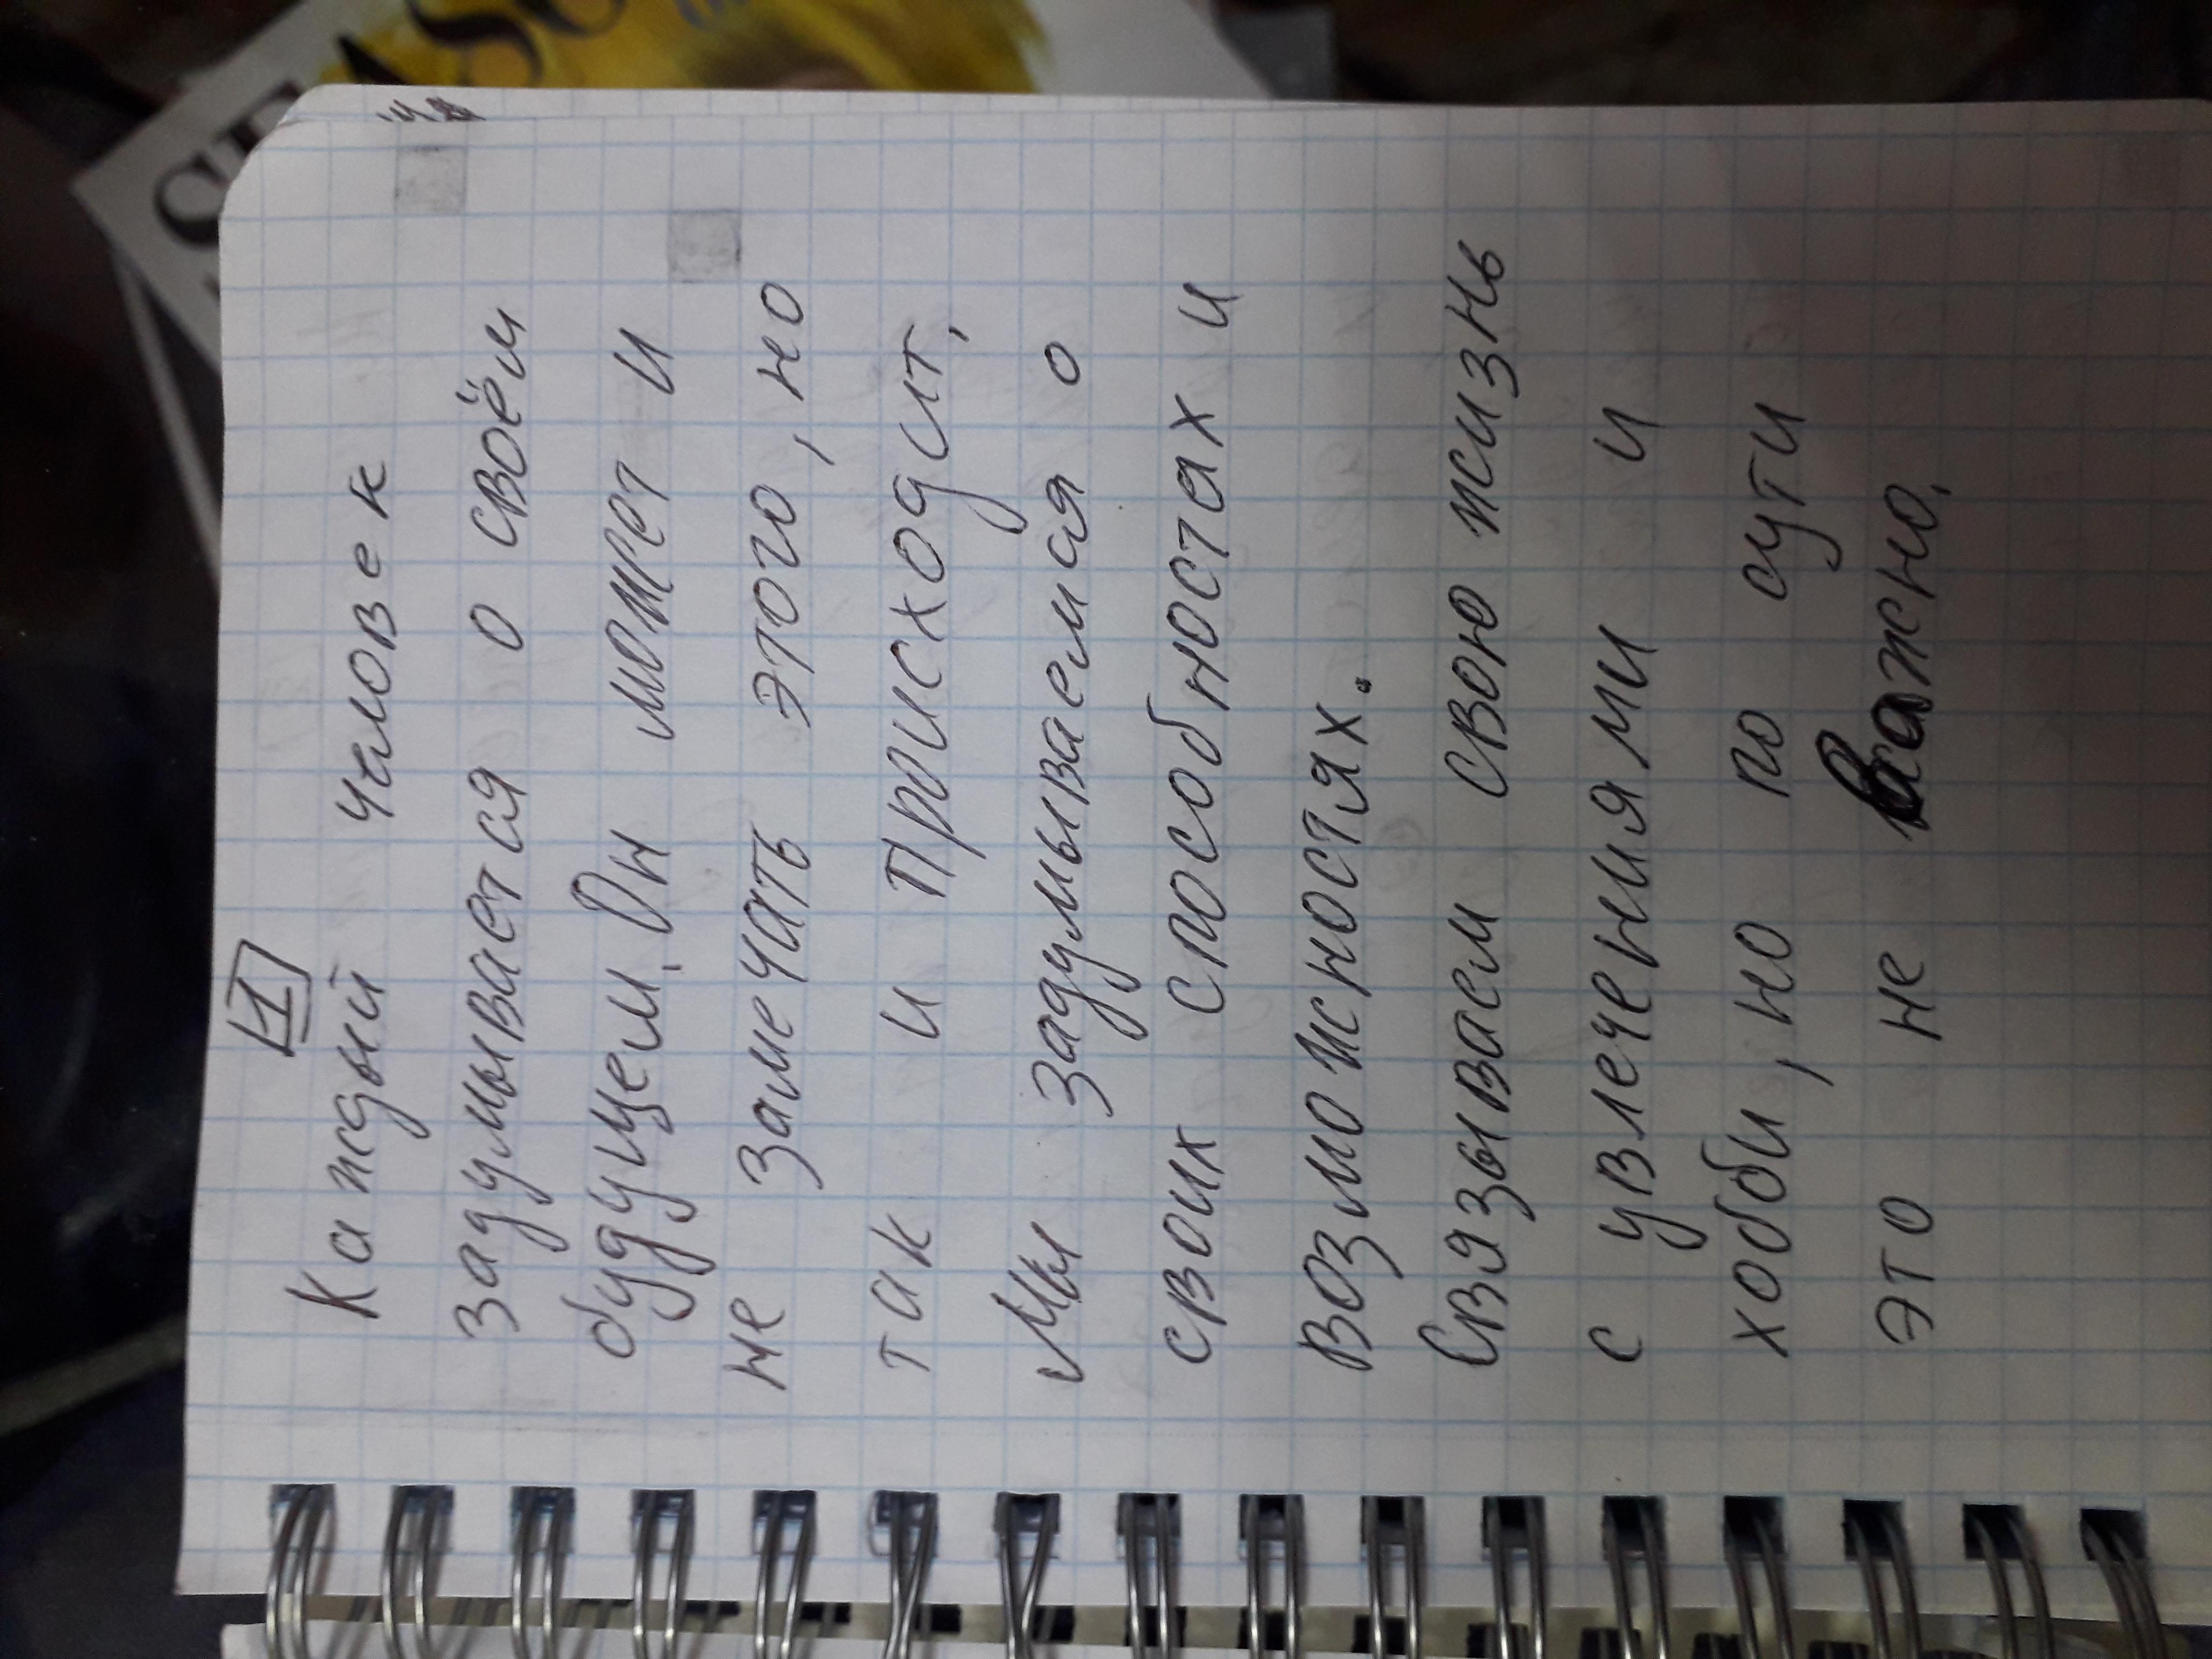 1
Каждый человек
задумывается о своём
будущем. Он может и
не замечать этого, но
так и происходит.
Мы задумываемся о
своих способностах и
возможностях.
Связываем свою жизнь
с увлечениями и
хобби, но по сути
это не важно.